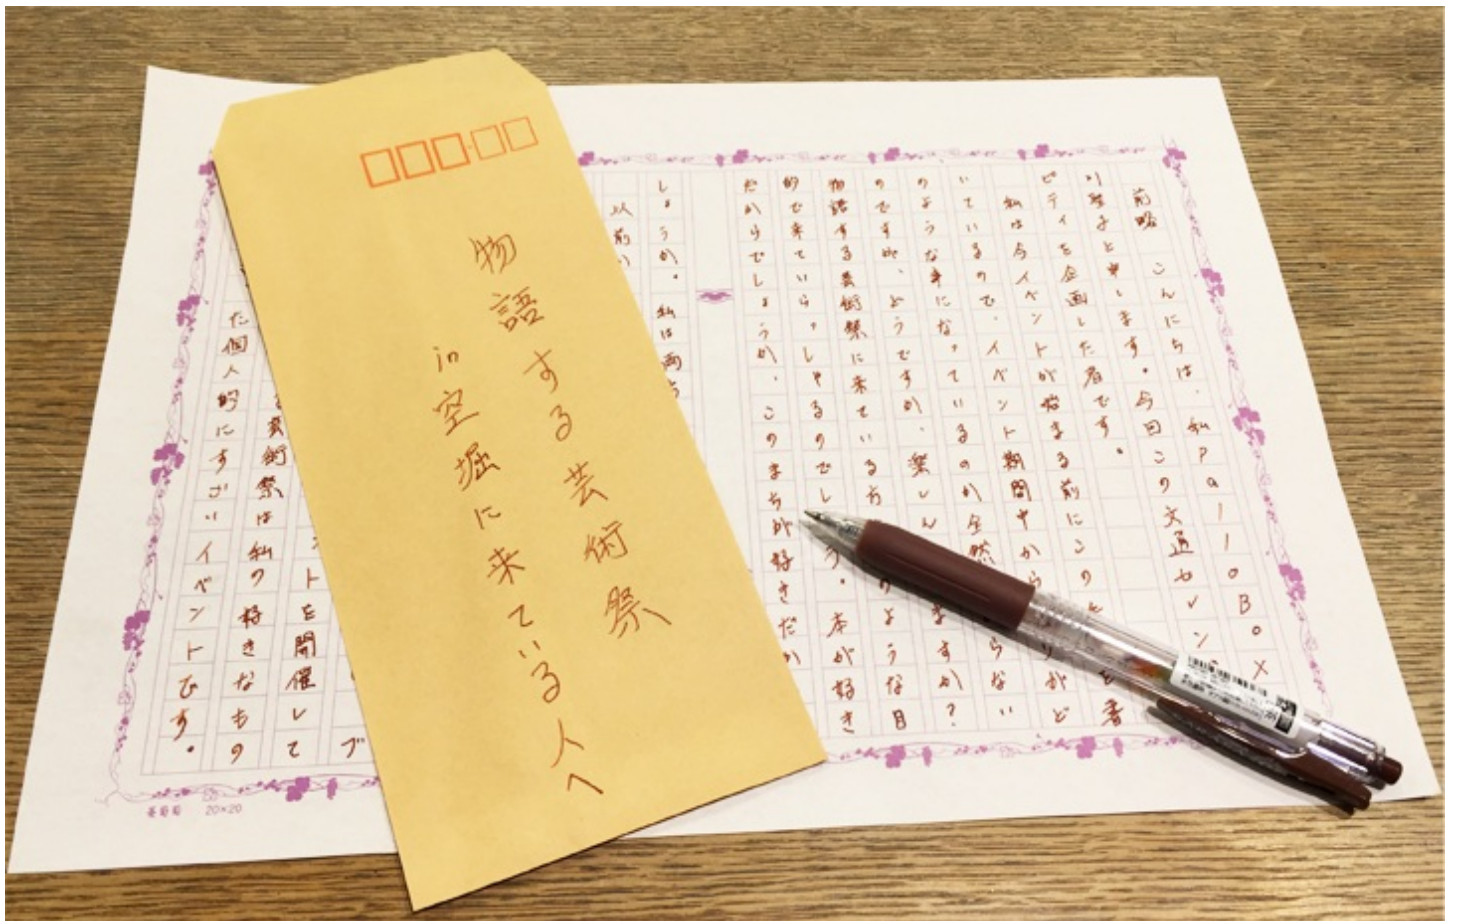 物語する芸術祭
in空堀に来ている人へ
前略 こんにちは、私PalloBox
聖子と申します。今回この文通セレン
ピティを企画した者です。
私は今イベントが始まる前にこの を書
いているので、イベント期間中から がど
のような事になっているのか全然 らない
のですが、どうですか、楽しん ますか?
物語する芸術祭に来ている方 のような目
的で来ていらっしゃるのでし う。本が好き
だからでしょうか、このまちが好きだか
しょうか。私は両
以前い
ブ
トを開催して
芸術祭は私の好きなもの
た個人的にすごいイベントです。
20×20